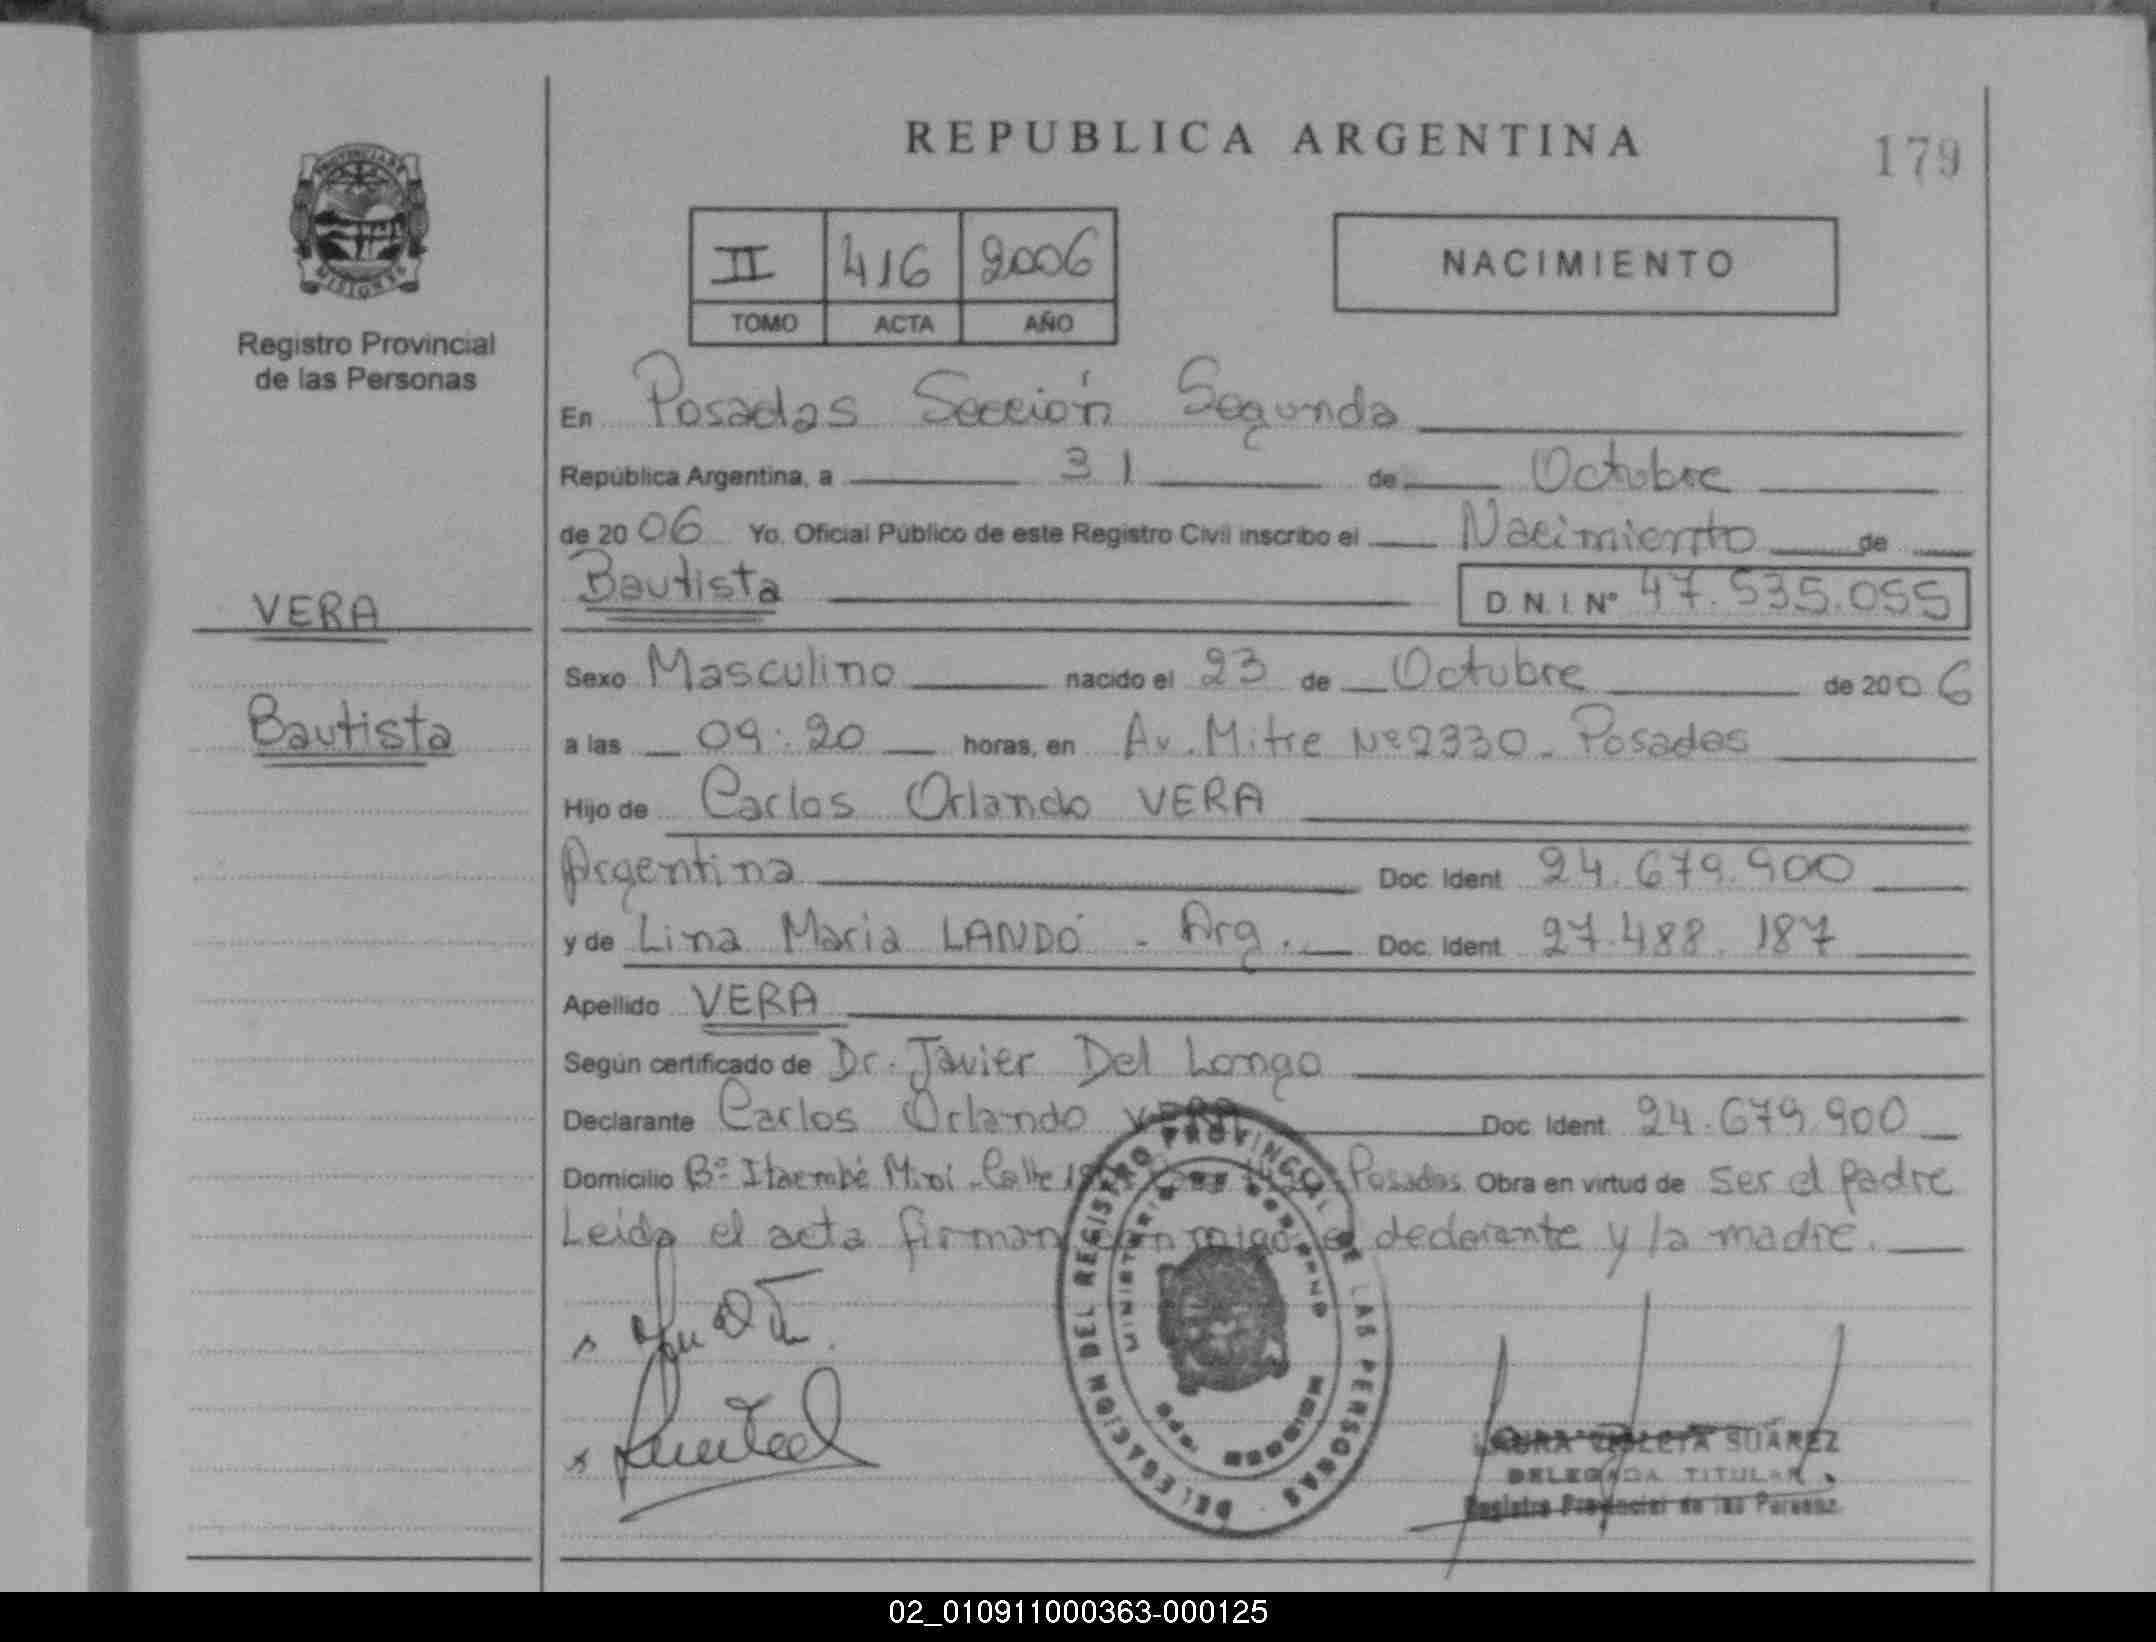 PROVINCIA DE
MISIONES
Registro Provincial
de las Personas
VERA
Bautista
REPUBLICA ARGENTINA
179
II 416 2006
TOMO ACTA AÑO
NACIMIENTO
En Posadas Sección Segunda
República Argentina, a 31 de Octubre
de 2006 Yo, Oficial Público de este Registro Civil inscribo el Nacimiento de
Bautista D.N.I. Nº 47.535.055
Sexo Masculino nacido el 23 de Octubre de 2006
a las 09:20 horas, en Av. Mitre Nº 2330 - Posadas
Hijo de Carlos Orlando VERA
Argentina Doc. Ident. 24.679.900
y de Lina Maria LANDÓ - Arg. Doc. Ident. 27.488.187
Apellido VERA
Según certificado de Dr. Javier Del Longo
Declarante Carlos Orlando VERA Doc. Ident. 24.679.900
Domicilio Bº Itaembé Miní - Calle Posadas Obra en virtud de ser el padre
Leida el acta firman conmigo el declarante y la madre.
DELEGACION DEL REGISTRO PROVINCIAL DE LAS PERSONAS
MINISTERIO DE GOBIERNO
MISIONES
LAURA VIOLETA SUÁREZ
DELEGADA TITULAR
Registro Provincial de las Personas
02_010911000363-000125